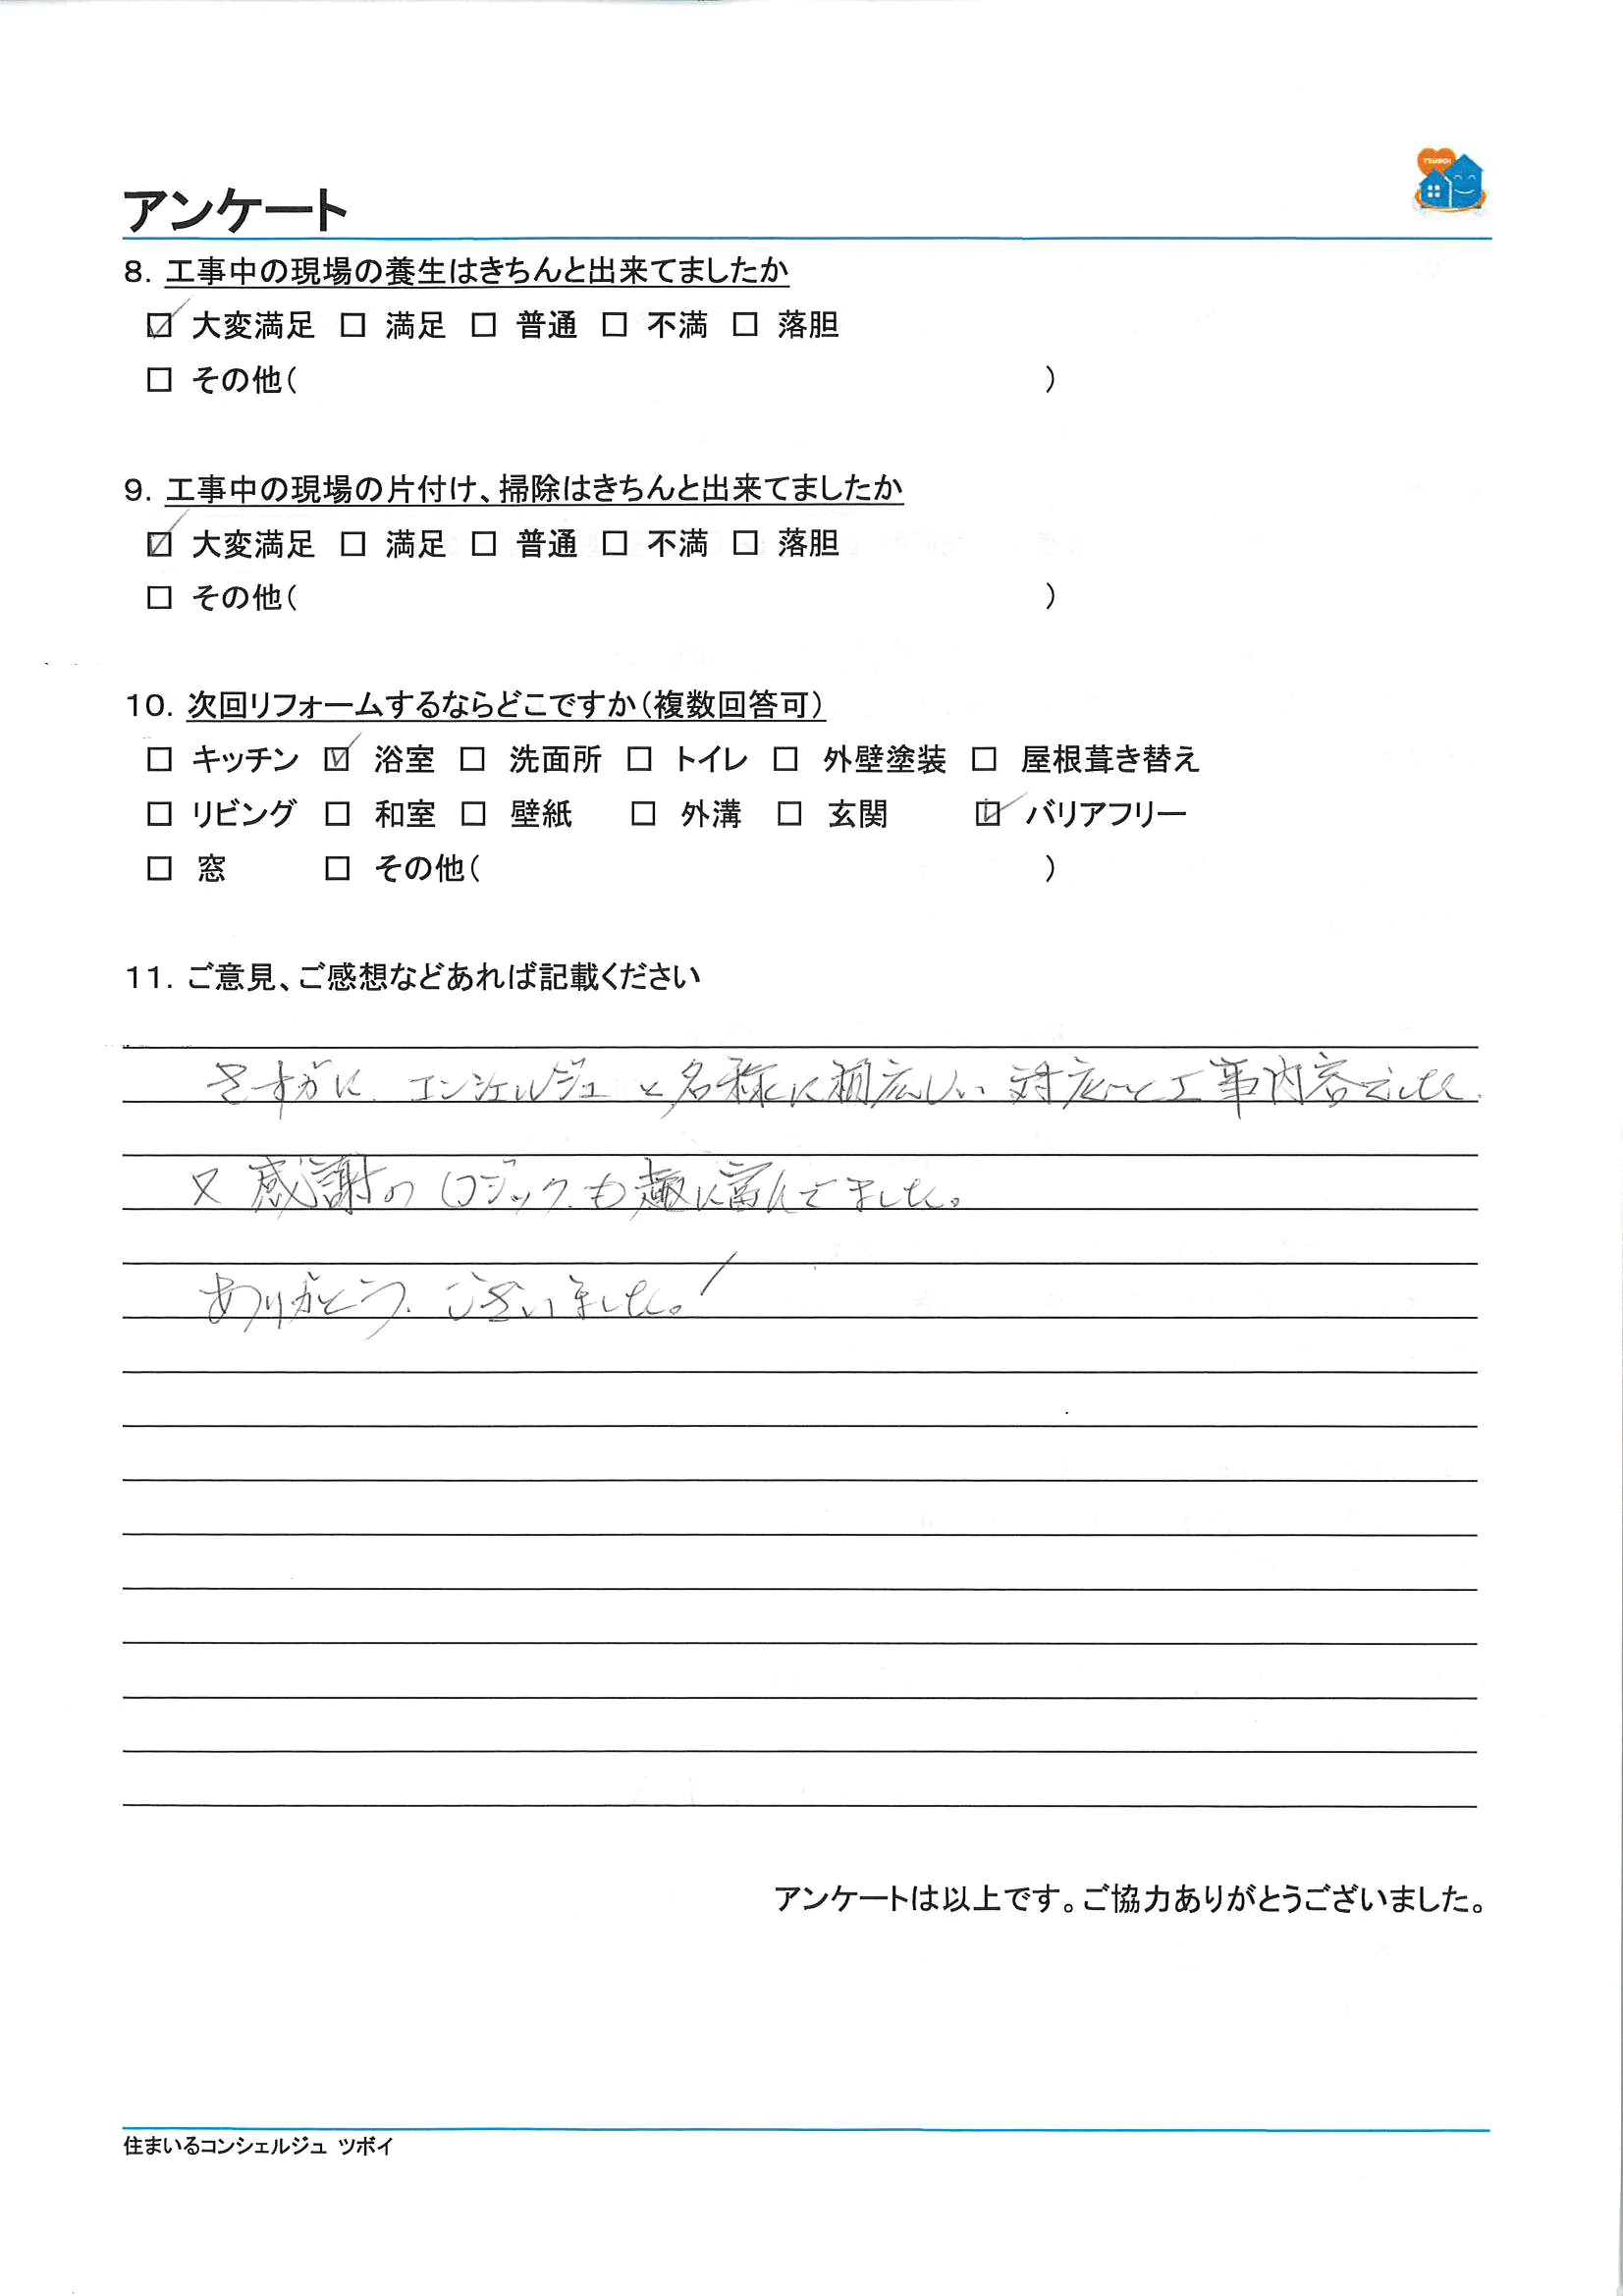 TSUBOI
アンケート
8. 工事中の現場の養生はきちんと出来てましたか
☑ 大変満足 □ 満足 □ 普通 □ 不満 □ 落胆
□ その他( )
9. 工事中の現場の片付け、掃除はきちんと出来てましたか
☑ 大変満足 □ 満足 □ 普通 □ 不満 □ 落胆
□ その他( )
10. 次回リフォームするならどこですか(複数回答可)
□ キッチン ☑ 浴室 □ 洗面所 □ トイレ □ 外壁塗装 □ 屋根葺き替え
□ リビング □ 和室 □ 壁紙 □ 外溝 □ 玄関 ☑ バリアフリー
□ 窓 □ その他( )
11. ご意見、ご感想などあれば記載ください
さすがに エンシェルジュ と名称に 対応と工事内容でした.
又 感謝の ロジックも趣に富んでました。
ありがとう ございました。!
アンケートは以上です。ご協力ありがとうございました。
住まいるコンシェルジュ ツボイ